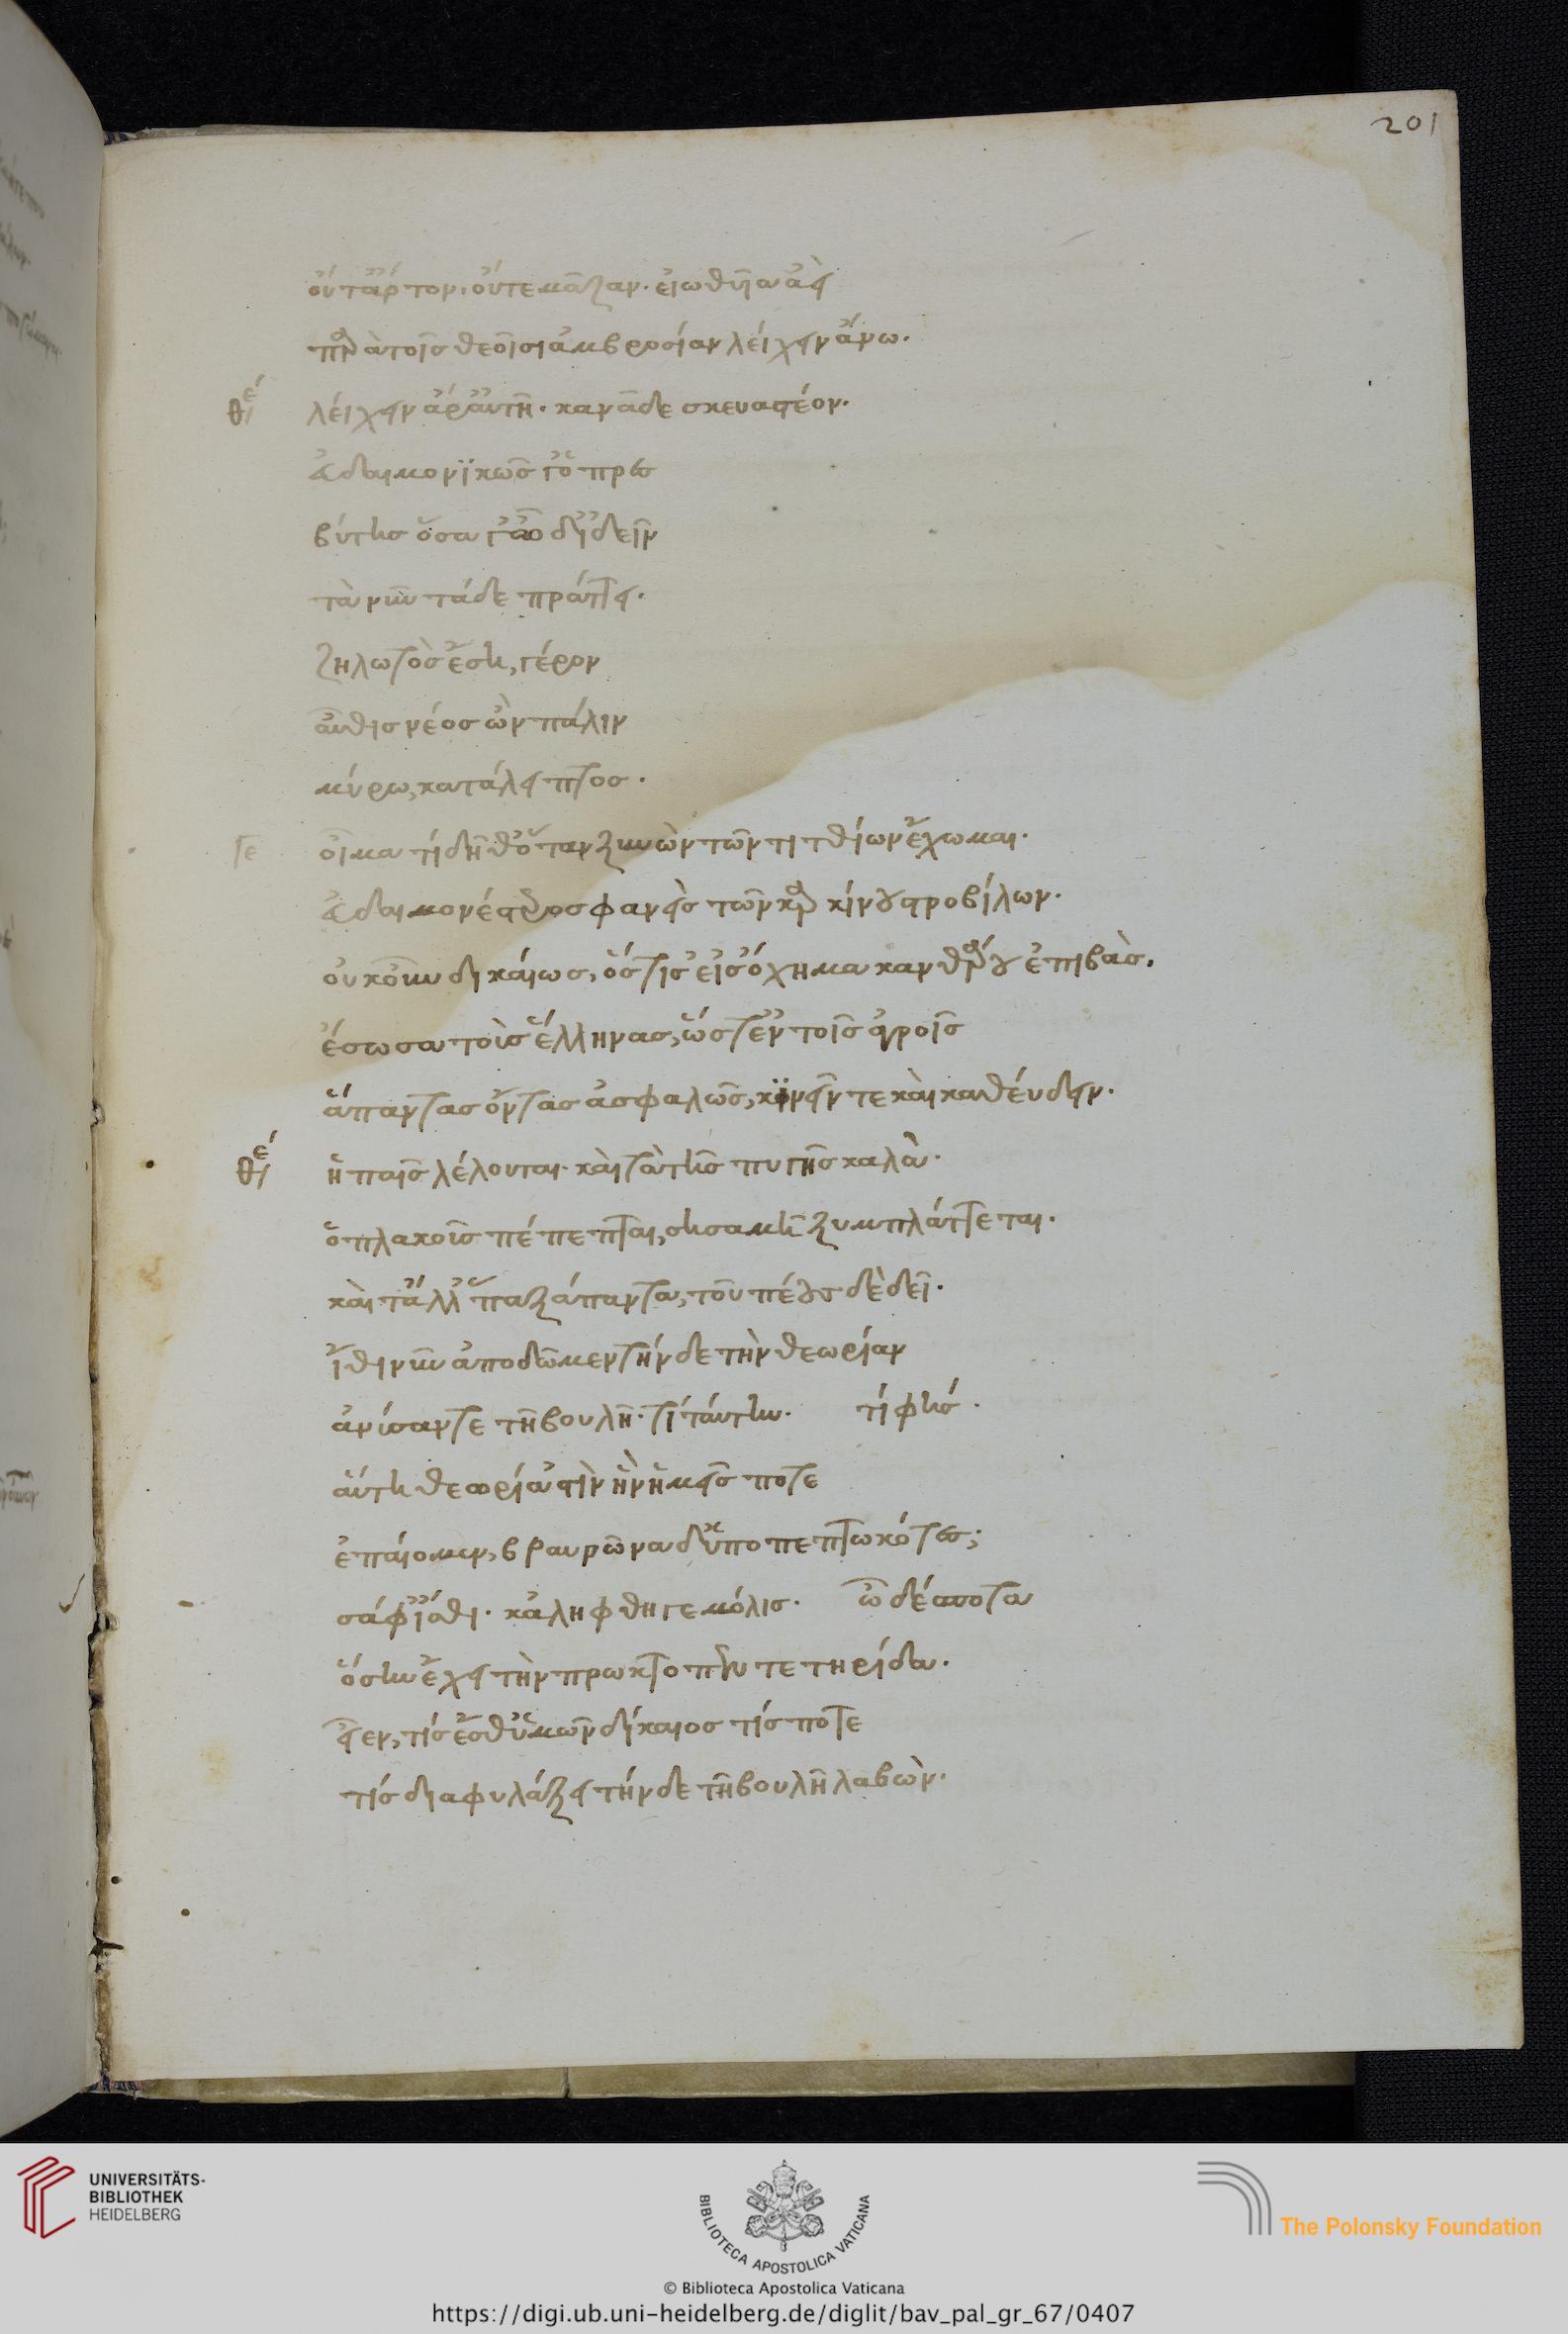 201
οὔτ' ἄρτον· οὔτε μᾶζαν· εἰωθυῖα ἀεὶ
παρὰ τοῖς θεοῖσι ἀμβροσίαν λείχειν ἄνω.
θε λείχειν ἄρ' αὐτῇ· κἀνάδε σκευαστέον.
εὐδαιμονϊκῶς γ' ὁ πρεσ
βύτης ὅσα γ' ὧδ' ἰδεῖν
τὰ νῦν τάδε πράττει.
ζηλωτὸς ἔση, γέρον
αὖθις νέος ὢν πάλιν
μύρω, κατάλειπτος.
τε οἶμαι τί δῆθ' ὅταν ξυνὼν τῶν τιτθίων ἔχωμαι.
εὐδαιμονέστερος φανεῖς τῶν καρκίνου στροβίλων.
οὐκοῦν δικαίως, ὅστις εἰς ὄχημα κανθάρου ἐπιβὰς.
ἔσωσα τοὺς ἕλληνας, ὥστ' ἐν τοῖς ἀγροῖς
ἅπαντας ὄντας ἀσφαλῶς, κϊνεῖν τε καὶ καθεύδειν.
θε ἡ παῖς λέλουται· καὶ τὰ τῆς πυγῆς καλὰ.
ὁ πλακοῦς πέπεπται, σησαμῆ ξυμπλάττεται.
καὶ τἄλλ' ἁπαξάπαντα, τοῦ πέους δὲ δεῖ.
ἴθι νῦν ἀποδῶμεν τήνδε τὴν θεωρίαν
ἀνύσαντε τῇ βουλῇ· τί ταύτην. τί φής.
αὕτη θεωρία ἐστὶν ἣν ἡμεῖς ποτε
ἐπαίομεν, βραυρῶνα δ' ὑποπεπτωκότες;
σάφ' ἴσθι. κἀλήφθη γε μόλις. ὦ δέσποτα
ὅσην ἔχει τὴν πρωκτοπεντετηρίδα.
εἶεν, τίς ἔσθ' ὑμῶν δίκαιος τίς ποτε
τίς διαφυλάξει τήνδε τῇ βουλῇ λαβὼν.
UNIVERSITÄTS-
BIBLIOTHEK
HEIDELBERG
BIBLIOTECA APOSTOLICA VATICANA
The Polonsky Foundation
© Biblioteca Apostolica Vaticana
https://digi.ub.uni-heidelberg.de/diglit/bav_pal_gr_67/0407